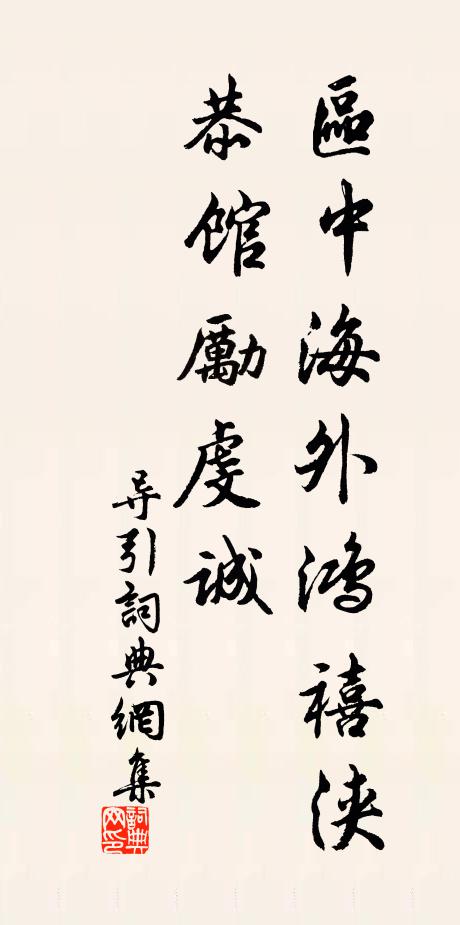 區中海外鴻禧浹
恭館勵虔誠
导引詞典網集
詞典
网印